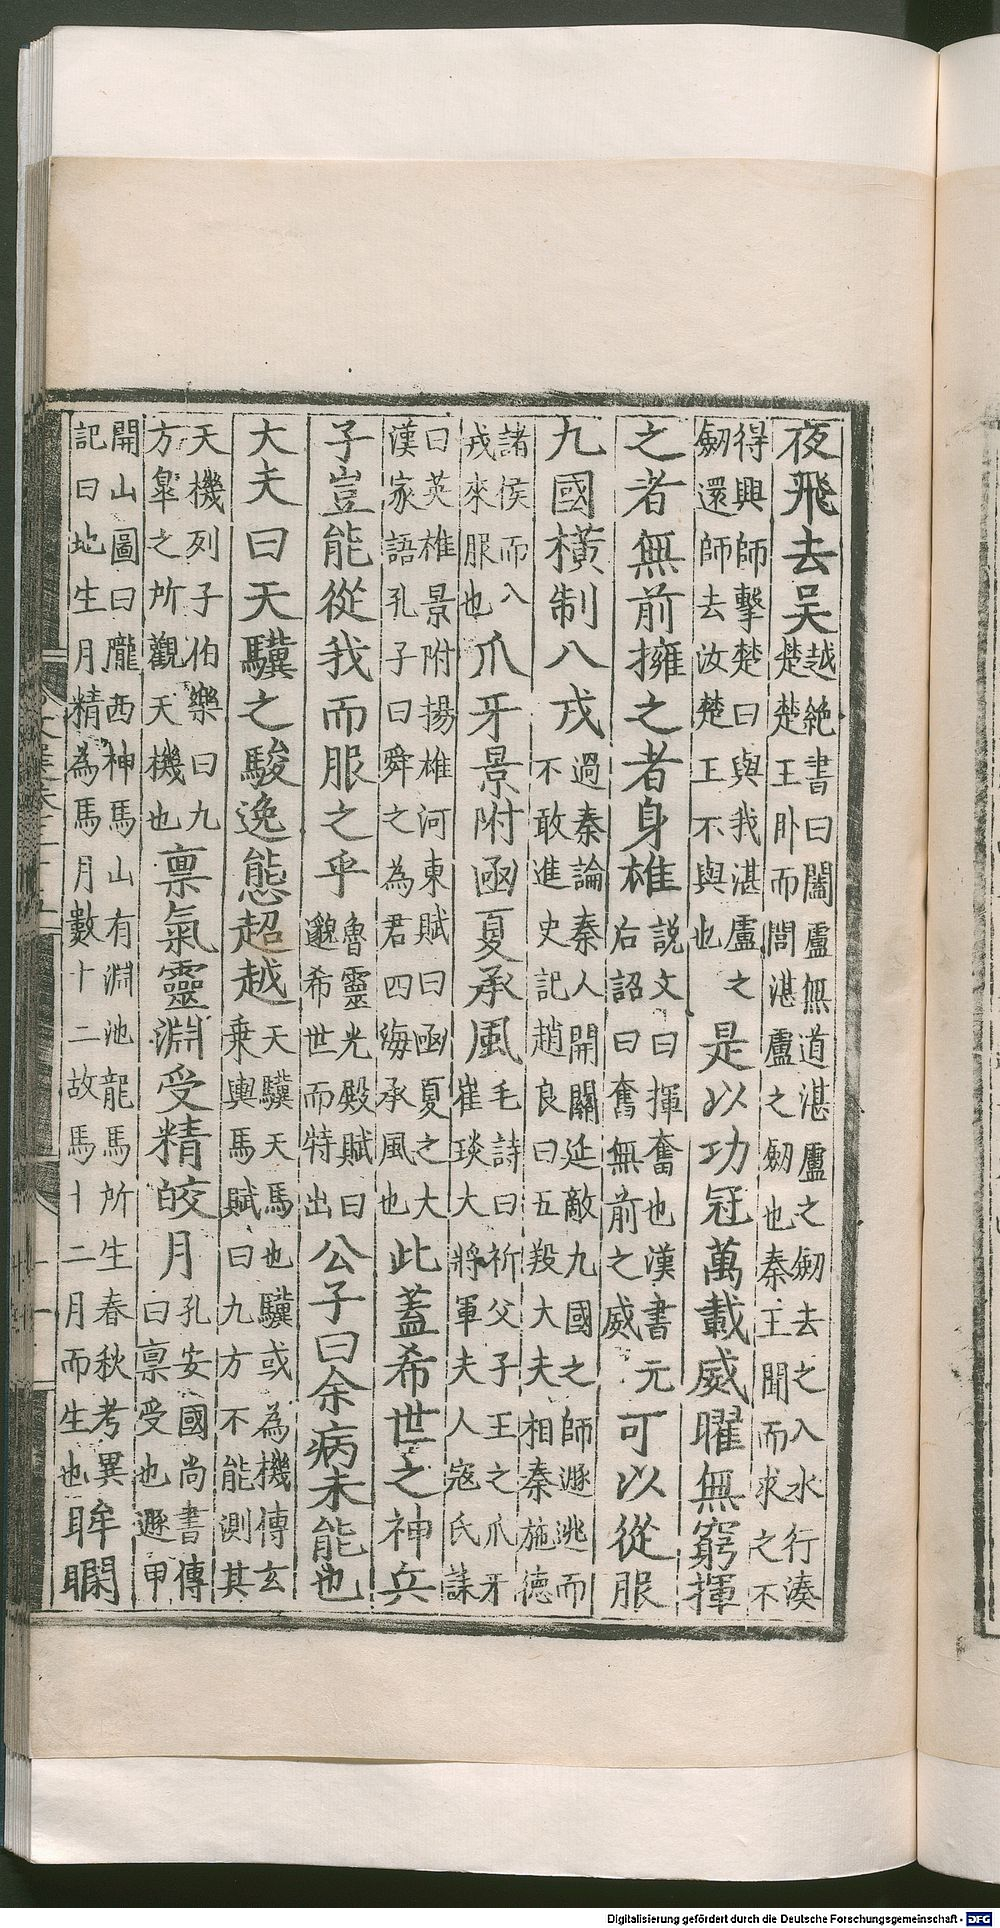 夜飛去吳越絶書曰闔盧無道湛盧之劒去之入水行湊
楚楚王卧而湛盧之劒也秦王聞而求之不
得興師擊楚曰與我湛盧之
劒還師去汝楚王不與也是以功冠萬載威曜無窮揮
之者無前擁之者身雄說文曰揮奮也漢書元
右詔曰奮無前之威可以從服
九國橫制八戎過秦論秦人開關延敵九國之師遯逃而
不敢進史記趙良曰五羖大夫相秦施德
諸侯而八
戎來服也爪牙景附函夏承風毛詩曰祈父子王之爪牙
崔琰大將軍夫人寇氏誄
曰英雄景附揚雄河東賦曰函夏之大
漢家語孔子曰舜之為君四海承風也此蓋希世之神兵
子豈能從我而服之乎魯靈光殿賦曰
邈希世而特出公子曰余病未能也
大夫曰天驥之駿逸態超越天驥天馬也驥或為機傅玄
乘輿馬賦曰九方不能測其
天機列子伯樂曰九
方臯之所觀天機也稟氣靈淵受精皎月孔安國尚書傳
曰稟受也遯甲
開山圖曰隴西神馬山有淵池龍馬所生春秋考異
記曰地生月精為馬月數十二故馬十二月而生也眸瞷
Digitalisierung gefördert durch die Deutsche Forschungsgemeinschaft - DFG